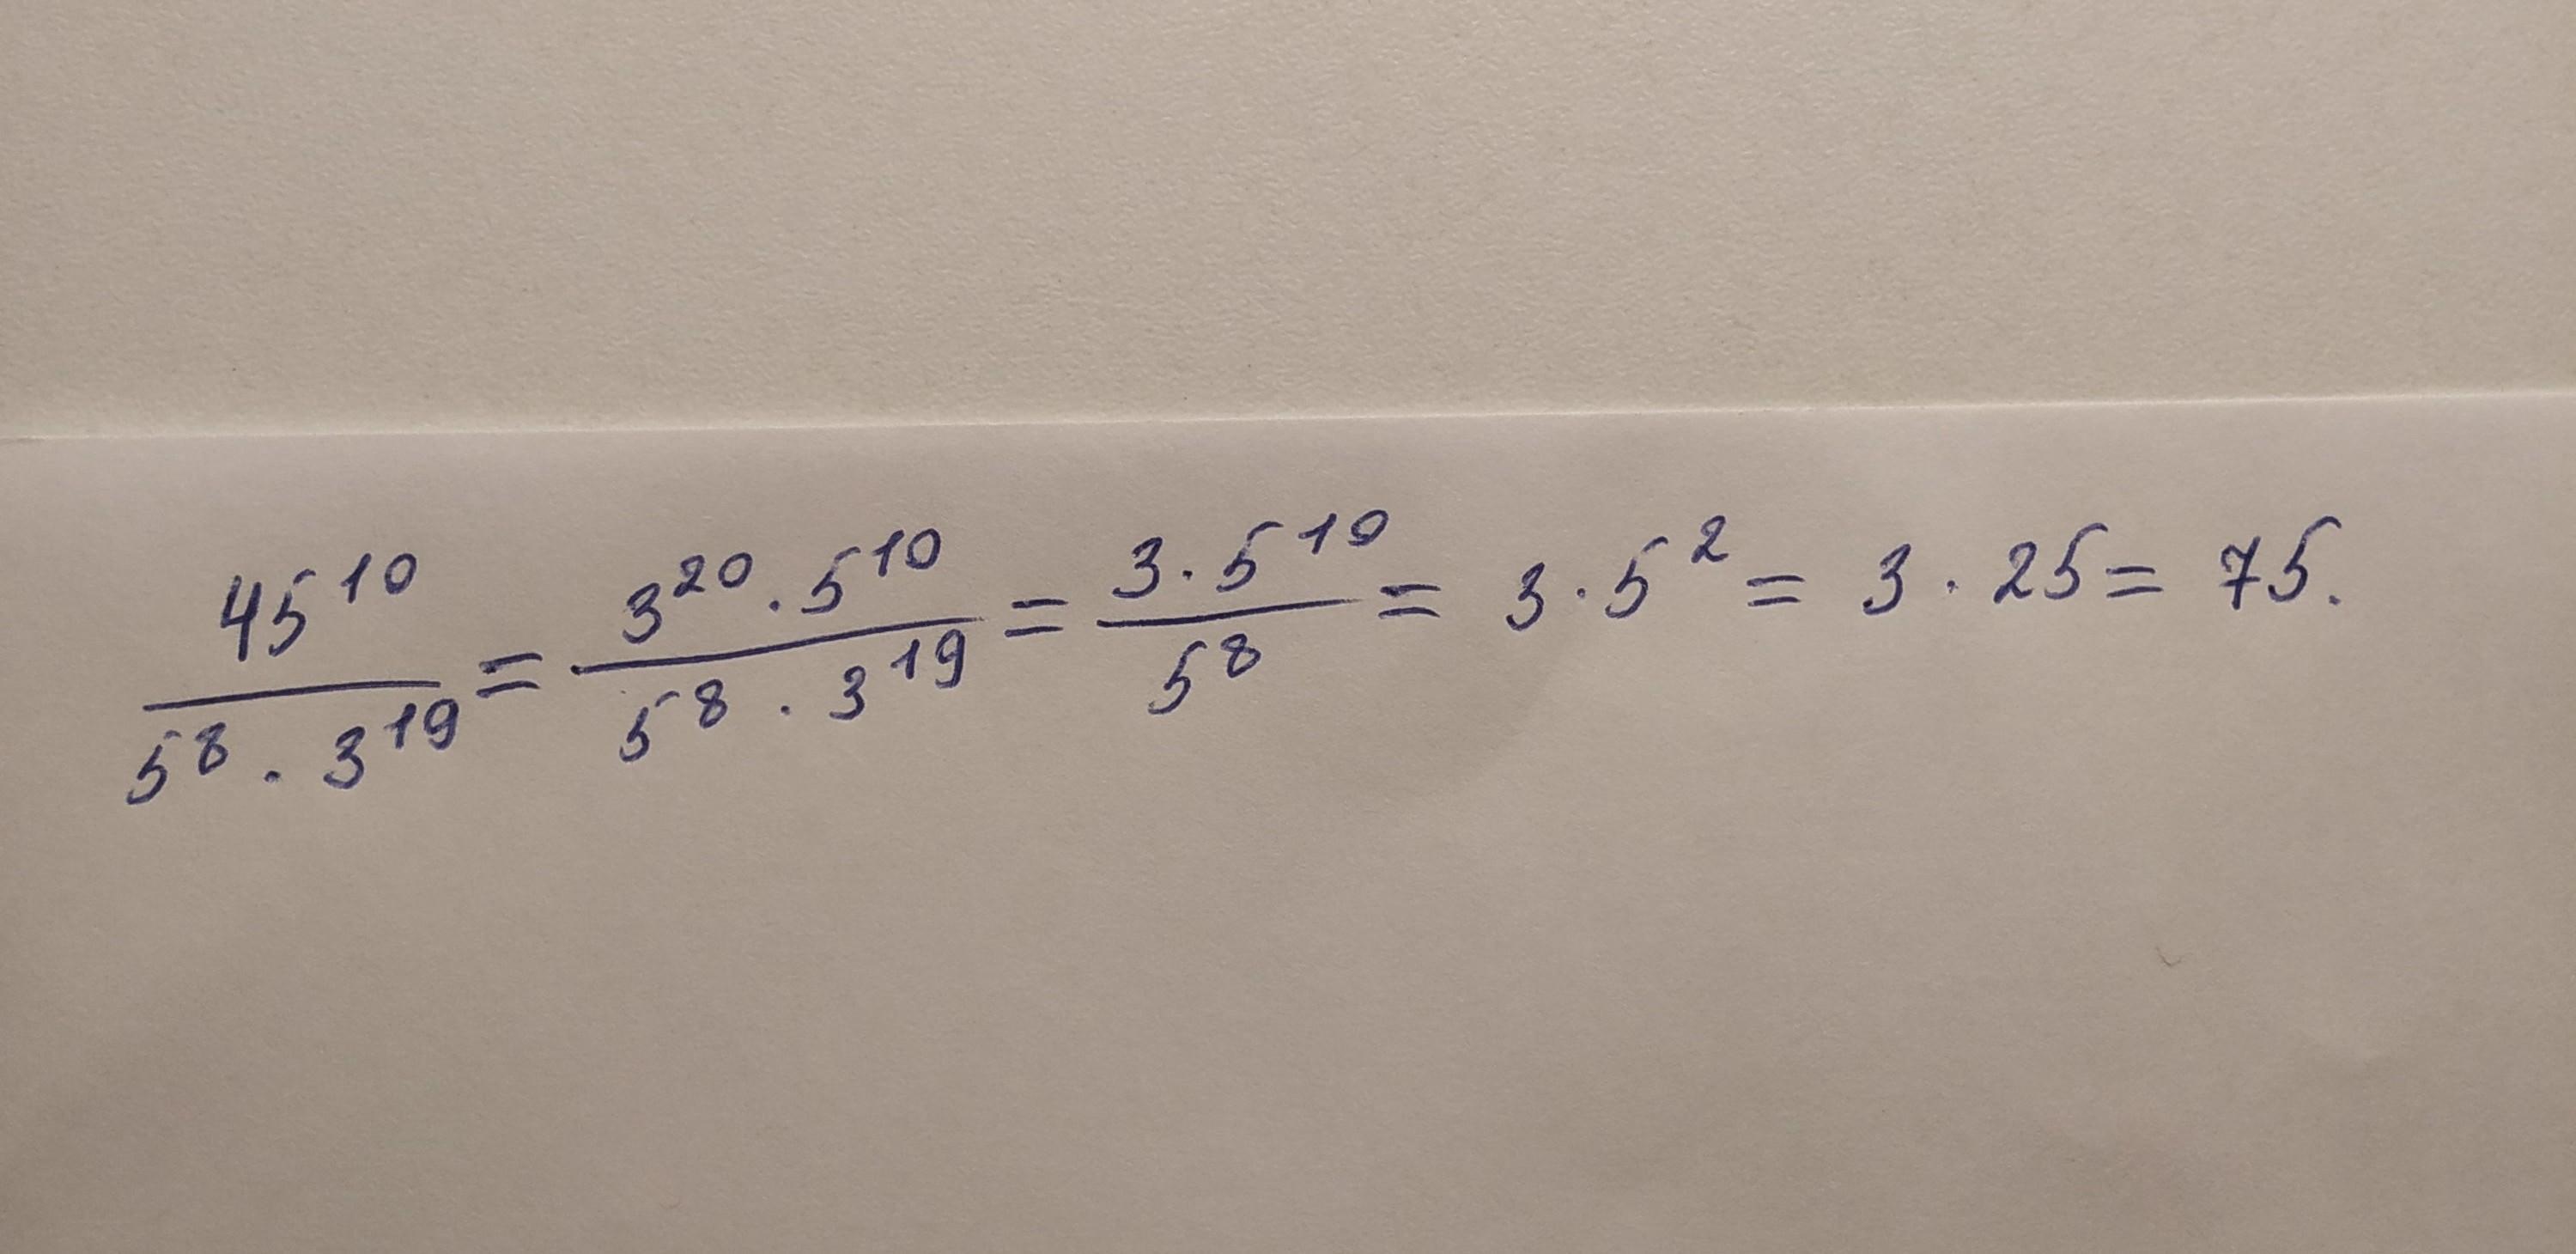 45^10 / (5^8 · 3^19) = (3^20 · 5^10) / (5^8 · 3^19) = (3 · 5^10) / 5^8 = 3 · 5^2 = 3 · 25 = 75.